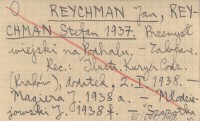 REYCHMAN Jan, REY-
CHMAN Stefan 1937. Przemysł
wiejski na Podhalu. — Zakopane.
Rec.: Ilustr. Kuryer Codz.
(Kraków), dodatek, 2. I. 1938. —
Magiera J. 1938 a. — Młodzie-
jowski J. 1938 f. —